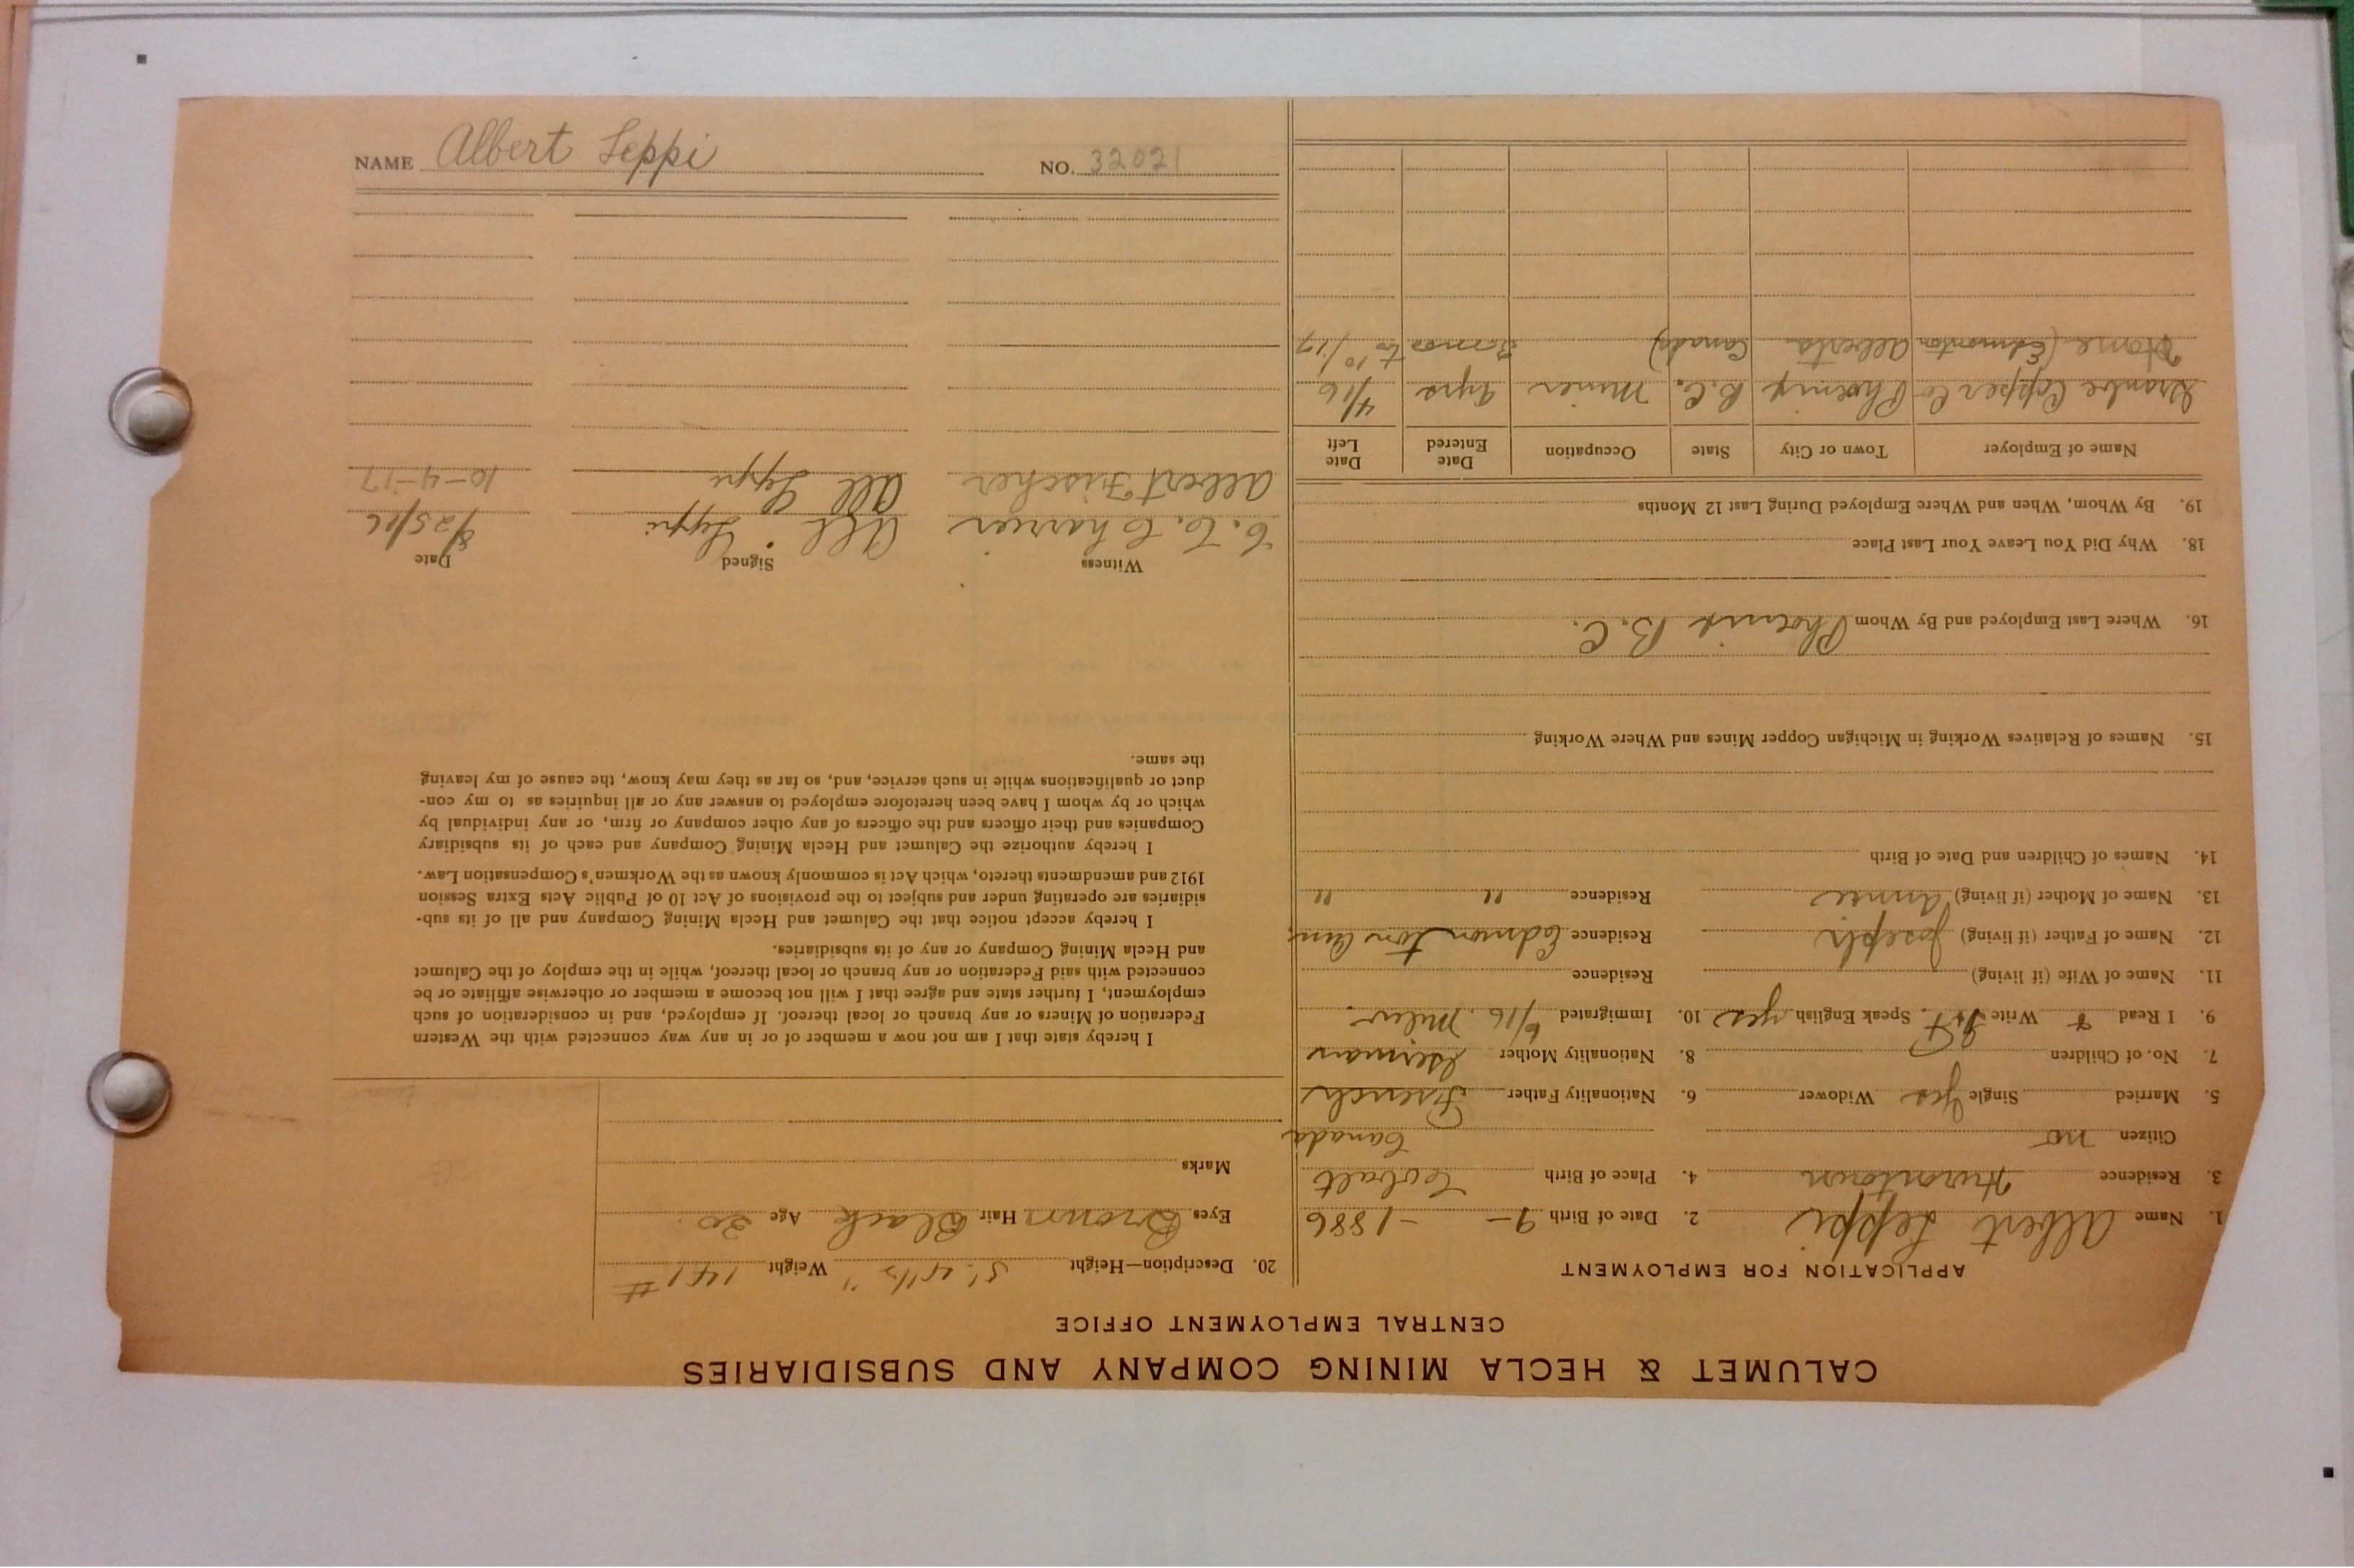 CALUMET & HECLA MINING COMPANY AND SUBSIDIARIES
CENTRAL EMPLOYMENT OFFICE
APPLICATION FOR EMPLOYMENT
1. Name Albert Leppi 2. Date of Birth 9 – – 1886
3. Residence Hurontown 4. Place of Birth Cobalt
Citizen no Canada
5. Married Single Yes Widower 6. Nationality Father French
7. No. of Children 8. Nationality Mother German
9. I Read & Write Speak English yes 10. Immigrated 6/16
11. Name of Wife (if living) Residence
12. Name of Father (if living) Joseph Residence Edmonton Can.
13. Name of Mother (if living) Annie Residence " "
14. Names of Children and Date of Birth
15. Names of Relatives Working in Michigan Copper Mines and Where Working
16. Where Last Employed and By Whom Phoenix B.C.
18. Why Did You Leave Your Last Place
19. By Whom, When and Where Employed During Last 12 Months
Name of Employer Town or City State Occupation Date Entered Date Left
Granbe Copper Co Phoenix B.C. Miner 2yrs 4/16
Home (Edmonton Alberta Canada) 3 mos to 10/17
20. Description—Height 5' 4 1/2" Weight 141 #
Eyes Brown Hair Black Age 30
Marks
I hereby state that I am not now a member of or in any way connected with the Western
Federation of Miners or any branch or local thereof. If employed, and in consideration of such
employment, I further state and agree that I will not become a member or otherwise affiliate or be
connected with said Federation or any branch or local thereof, while in the employ of the Calumet
and Hecla Mining Company or any of its subsidiaries.
I hereby accept notice that the Calumet and Hecla Mining Company and all of its sub-
sidiaries are operating under and subject to the provisions of Act 10 of Public Acts Extra Session
1912 and amendments thereto, which Act is commonly known as the Workmen's Compensation Law.
I hereby authorize the Calumet and Hecla Mining Company and each of its subsidiary
Companies and their officers and the officers of any other company or firm, or any individual by
which or by whom I have been heretofore employed to answer any or all inquiries as to my con-
duct or qualifications while in such service, and, so far as they may know, the cause of my leaving
the same.
Witness Signed Date
C. C. Charrier Alb Leppi 8/25/16
Albert Fischer Alb Leppi 10-4-17
NAME Albert Leppi NO. 32021